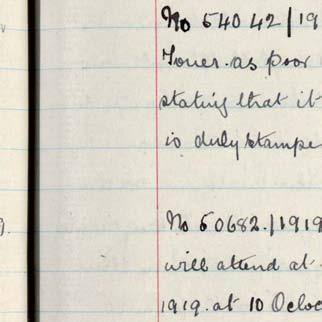 No 54042/19
Toues. as poor
stating that it
is duly stampe
9.
No 50682./1919
will attend at
1919. at 10 Ocloc